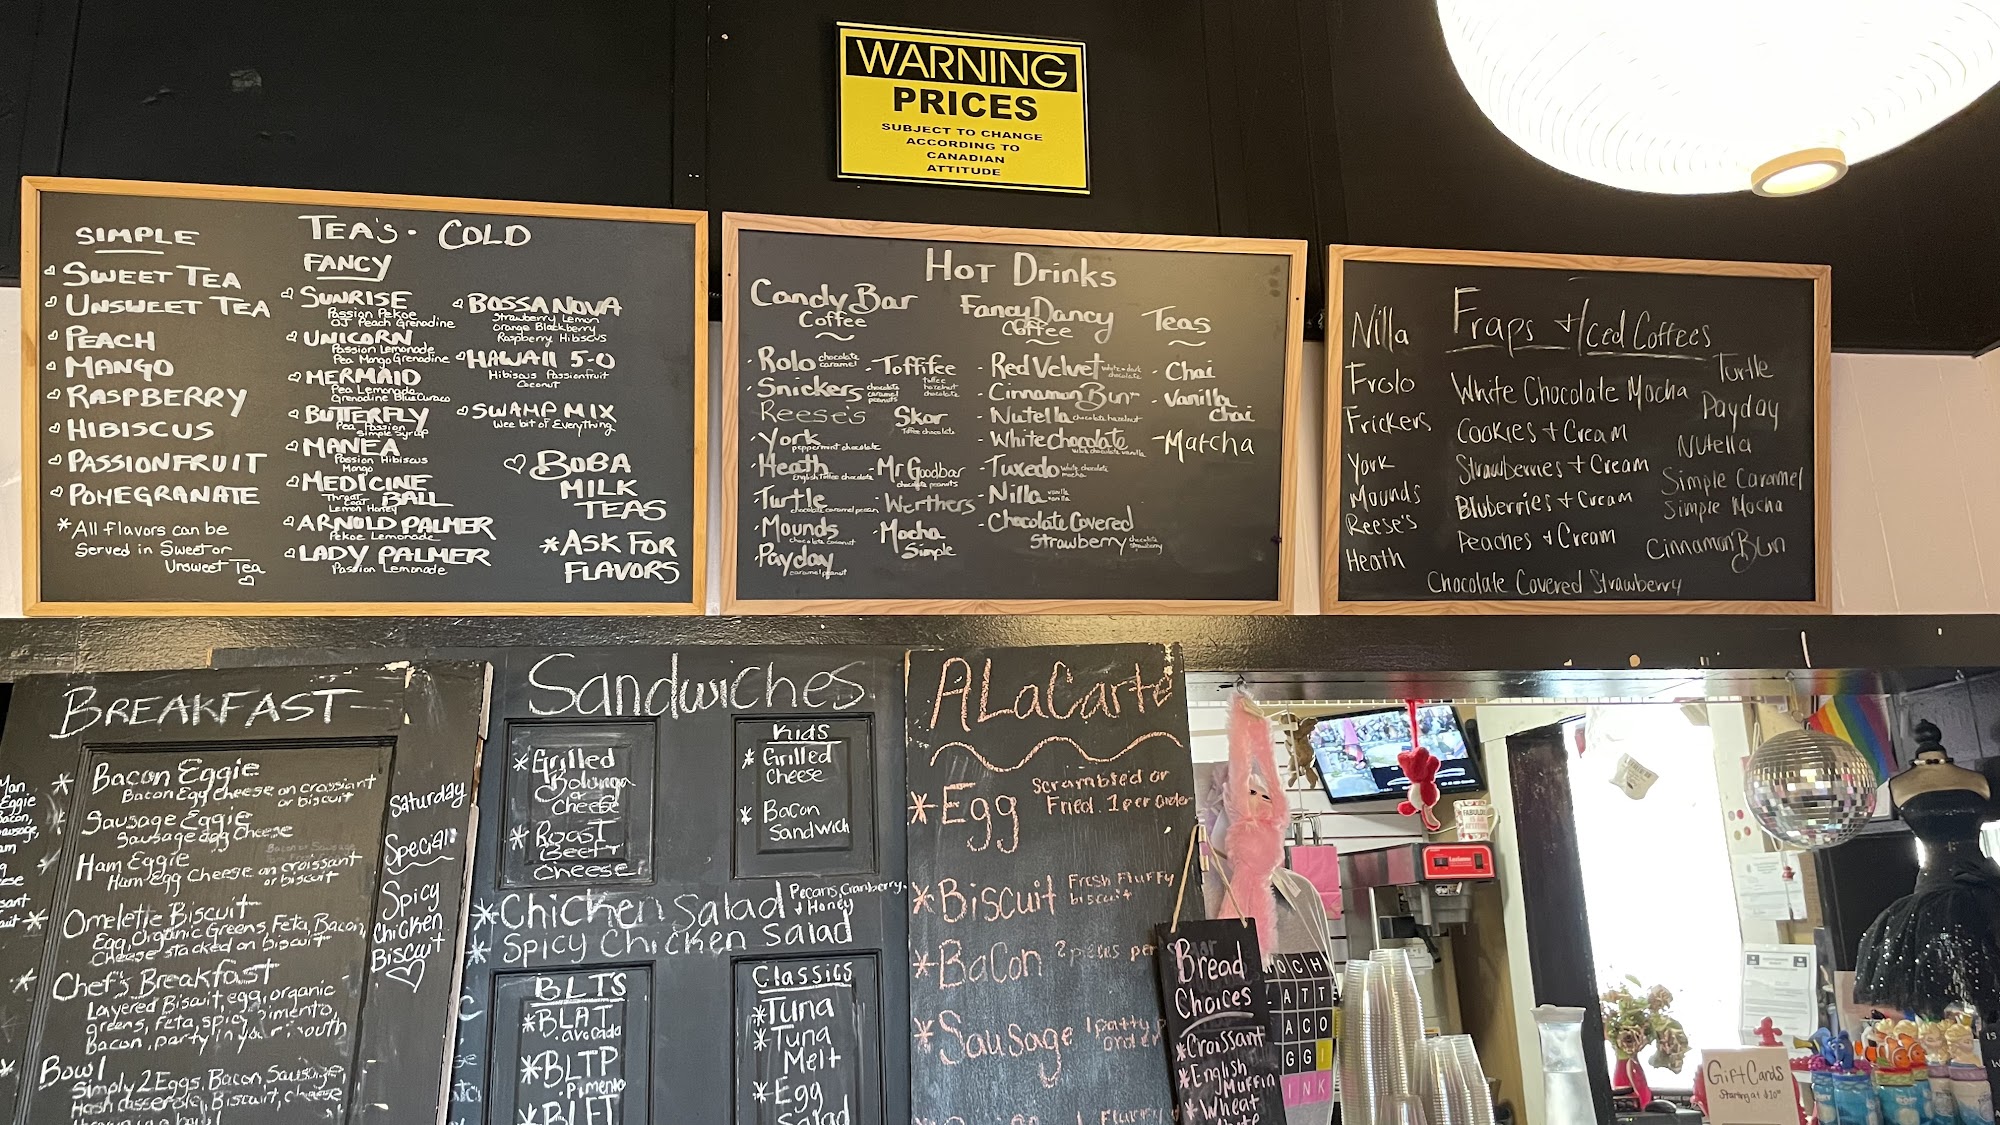 WARNING
PRICES
SUBJECT TO CHANGE
ACCORDING TO
CANADIAN
ATTITUDE
TEA'S - COLD
SIMPLE
SWEET TEA
UNSWEET TEA
PEACH
MANGO
RASPBERRY
HIBISCUS
PASSIONFRUIT
POMEGRANATE
*All flavors can be
Served in Sweet or
Unsweet Tea
FANCY
SUNRISE
Passion Pekoe
OJ Peach Grenadine
UNICORN
Passion Lemonade
Pea Mango Grenadine
MERMAID
Pea Lemonade
Grenadine Blue Curaco
BUTTERFLY
Pea Passion
Simple Syrup
MANEA
Passion Hibiscus
Mango
MEDICINE
BALL
Throat
Coat
Lemon Honey
ARNOLD PALMER
Pekoe Lemonade
LADY PALMER
Passion Lemonade
BOSSA NOVA
Strawberry Lemon
Orange Blackberry
Raspberry Hibiscus
HAWAII 5-0
Hibiscus Passionfruit
Coconut
SWAMP MIX
Wee bit of Everything
BOBA
MILK
TEAS
*ASK FOR
FLAVORS
Hot Drinks
Candy Bar
Coffee
- Rolo chocolate caramel
- Snickers chocolate caramel peanuts
Reese's
- York peppermint chocolate
- Heath English toffee chocolate
- Turtle chocolate caramel pecan
- Mounds chocolate coconut
- Payday caramel peanut
- Toffifee
toffee
hazelnut
chocolate
Skor
toffee chocolate
- Mr Goodbar
chocolate peanuts
- Werthers
- Mocha
Simple
Fancy Dancy
Coffee
- Red Velvet white + dark chocolate
- Cinnamon Bun
- Nutella chocolate hazelnut
- White chocolate
white chocolate vanilla
- Tuxedo white chocolate mocha
- Nilla
- Chocolate Covered
Strawberry chocolate strawberry
Teas
- Chai
- Vanilla
Chai
- Matcha
Fraps + Iced Coffees
Nilla
Frolo
Frickers
York
Mounds
Reese's
Heath
White Chocolate Mocha
Cookies + Cream
Strawberries + Cream
Bluberries + Cream
Peaches + Cream
Chocolate Covered Strawberry
Turtle
Payday
Nutella
Simple Caramel
Simple Mocha
Cinnamon Bun
BREAKFAST
* Bacon Eggie
Bacon Egg Cheese on crassiant
or biscuit
* Sausage Eggie
Sausage egg cheese
* Ham Eggie
Ham Egg Cheese on croissant
or biscuit
* Omelette Biscuit
Egg, Organic Greens, Feta, Bacon,
Cheese stacked on biscuit
* Chef's Breakfast
Layered Biscuit, egg, organic
greens, feta, spicy pimento,
Bacon, party in your mouth
* Bowl
Simply 2 Eggs, Bacon, Sausage,
Hash casserole, Biscuit, cheese
Saturday
Special!
Spicy
chicken
Biscuit
Sandwiches
* Grilled
Bologna
&
cheese
* Roast
Beef +
cheese
Kids
* Grilled
Cheese
* Bacon
Sandwich
* Chicken Salad Pecans, Cranberry,
+ Honey
* Spicy Chicken Salad
BLTS
* BLAT
avocado
* BLTP
Pimento
* BLFT
Classics
* Tuna
* Tuna
Melt
* Egg
Salad
A La Carte
* Egg Scrambled or
Fried. 1 per order
* Biscuit Fresh Fluffy
biscuit
* Bacon 2 pieces per
* Sausage 1 patty
order
Bread
Choices
* Croissant
* English
Muffin
* Wheat
OCH
ATT
ACO
GGI
INK
Gift Cards
Starting at $10